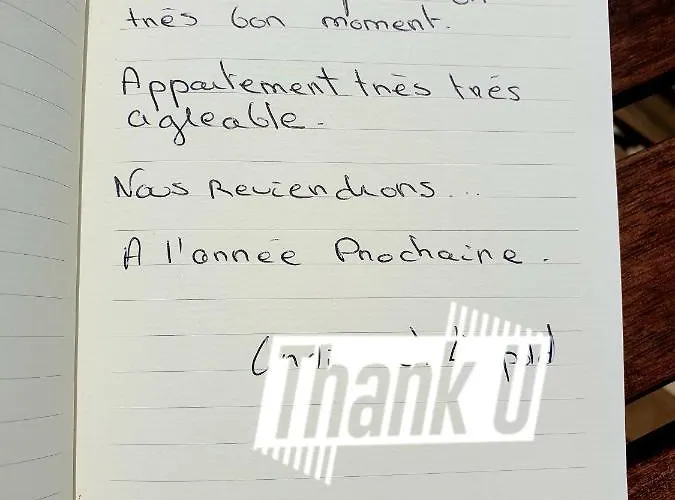 très bon moment.
Appartement très très
agréable.
Nous Reviendrons...
A l'année Prochaine.
Thank U